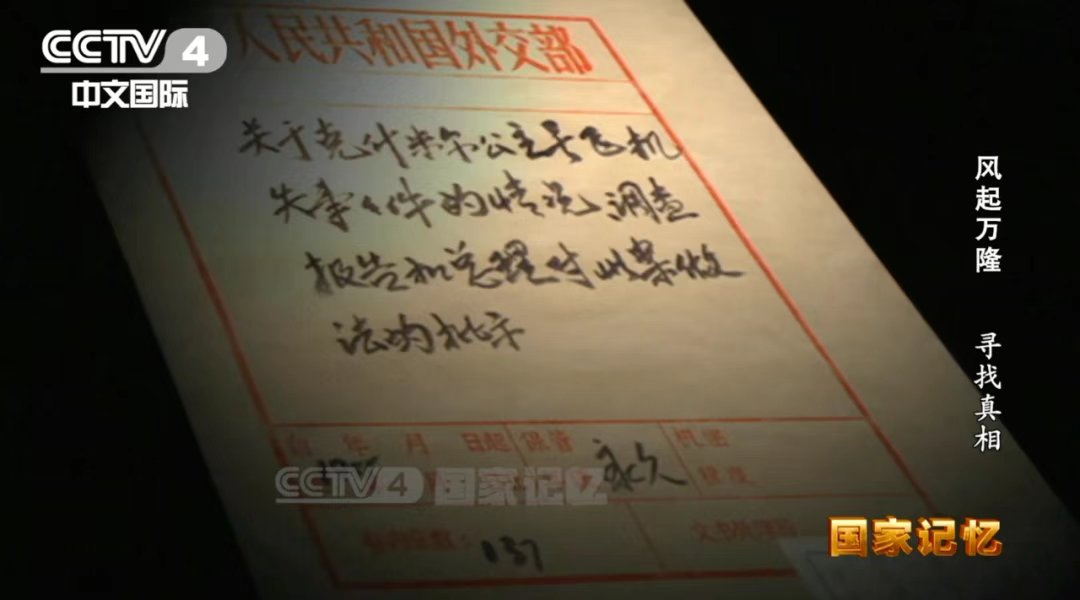 CCTV 4
中文国际
人民共和国外交部
关于克什米尔公主号飞机
失事事件的情况调查
报告和总理对此案做
法的批示
年 月 日起
保管
永久
机密
程度
137
CCTV 4 国家记忆
风起万隆 寻找真相
国家记忆